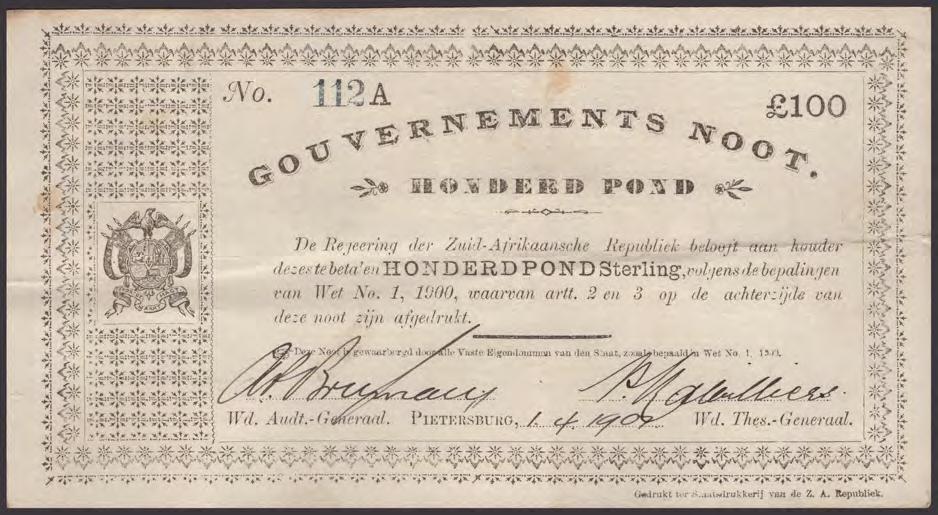 No. 112 A £100
GOUVERNEMENTS NOOT.
HONDERD POND
De Regeering der Zuid-Afrikaansche Republiek belooft aan houder
dezes te betalen HONDERD POND Sterling, volgens de bepalingen
van Wet No. 1, 1900, waarvan artt. 2 en 3 op de achterzijde van
deze noot zijn afgedrukt.
Deze Noot is gewaarborgd door alle Vaste Eigendommen van den Staat, zooals bepaald in Wet No. 1, 1900.
Wd. Audt.-Generaal. PIETERSBURG, 1. 4. 1901 Wd. Thes.-Generaal.
Gedrukt ter Staatsdrukkerij van de Z. A. Republiek.